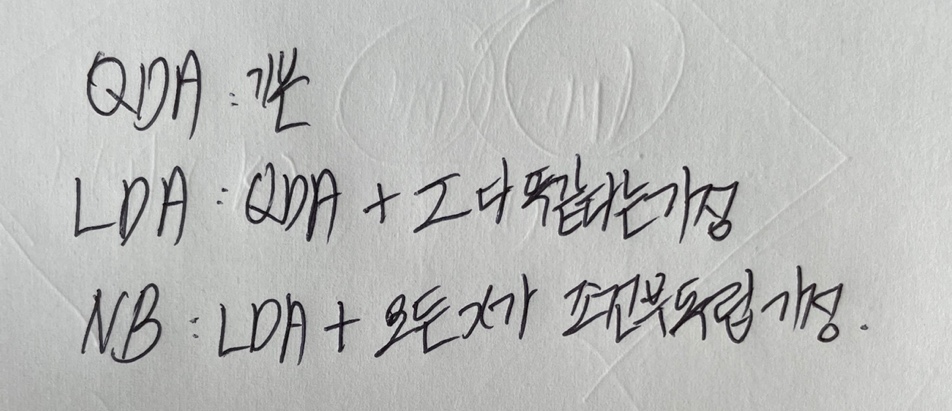 QDA : 기본
LDA : QDA + Σ 다 똑같다는 가정
NB : LDA + 모든 x가 조건부독립 가정.